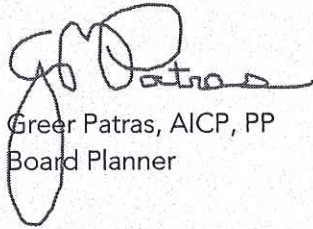 G Patras
Greer Patras, AICP, PP
Board Planner